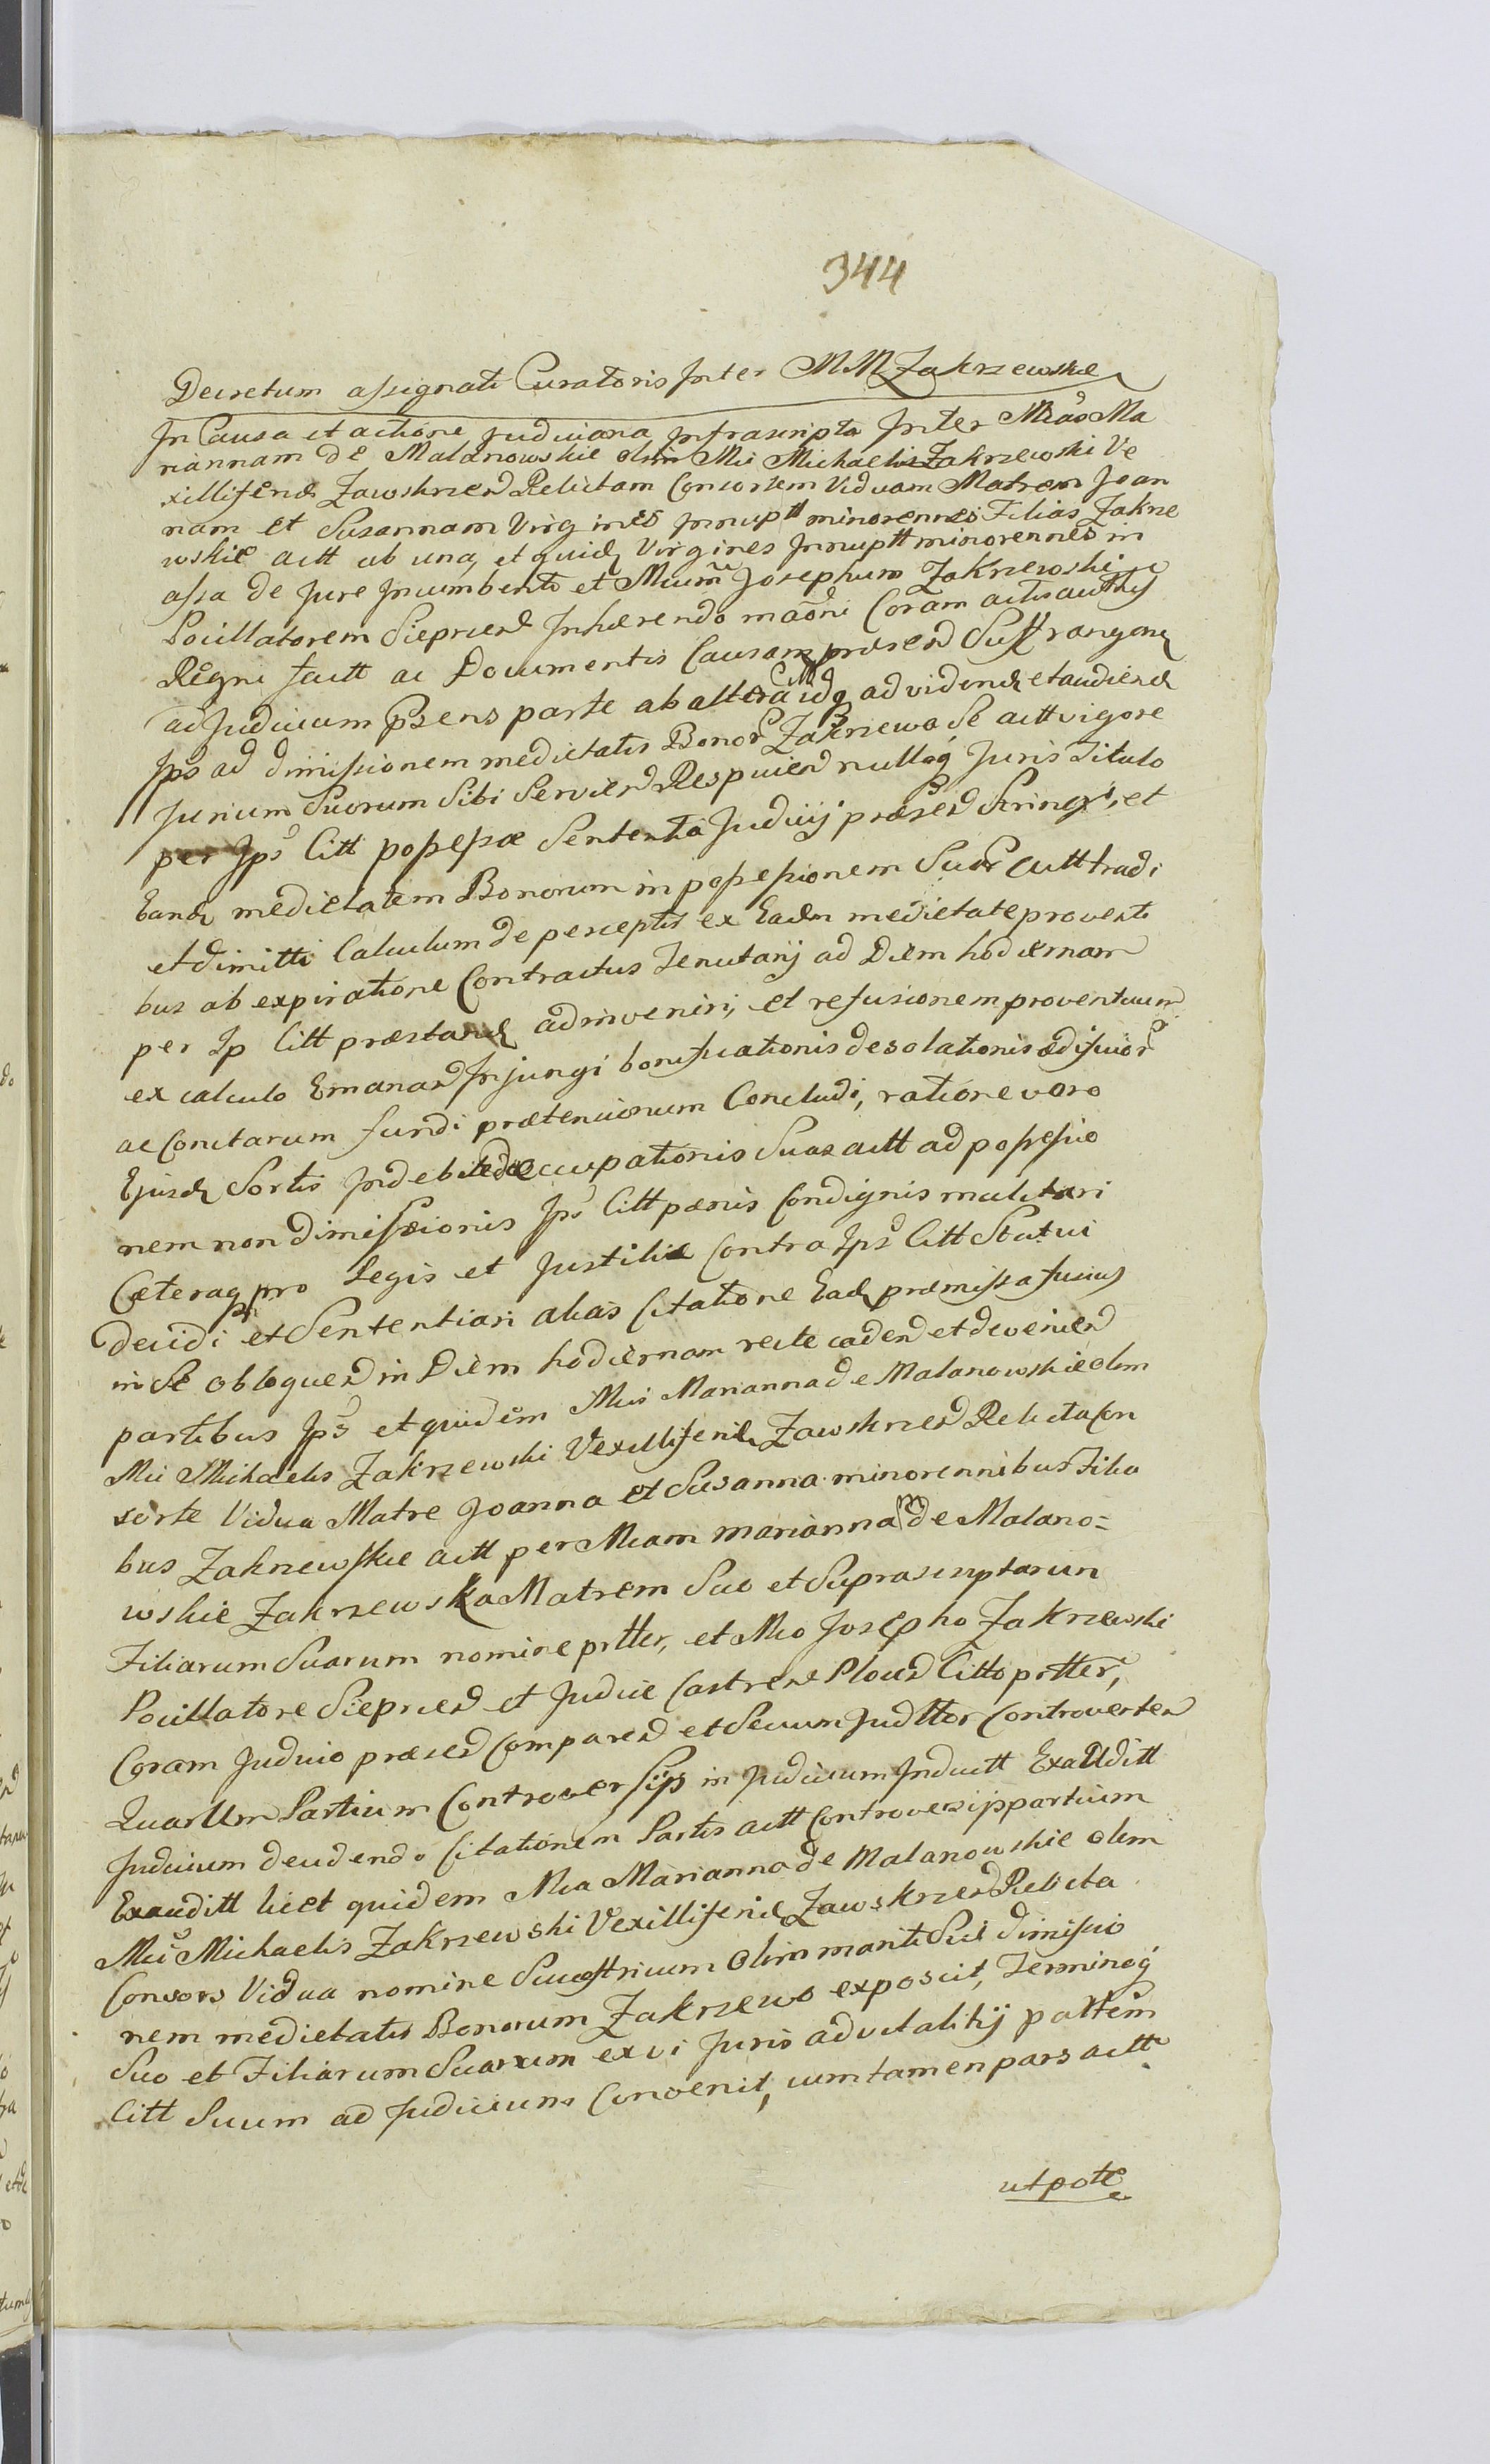 344
Decretum assignati Curatoris Inter MM Zakrzewskie
In Causa et actione judiciaria Infrascripta Inter Mcas Ma
riannam de Malanowskie olim Mci Michaelis Zakrzewski Ve
xilliferid Zawskrzen Relictam Consortem Viduam Matrem Joan
nam et Susannam Virgines Innuptt minorennes Filias Zakrze
wskie actt ab una, et quidem Virgines Innuptt minorennes in
assa de Jure Incumbenti et Mcum Josephum Zakrzewski
Pocillatorem Sieprcen Inhærendo Coram actis
Regni factt ac Documentis Causam præsen
ad Judicium Psens parte ab altera Citt idq ad vidend et audiend
Ips ad dimissionem medietatis Bonor Zakrzewo Se actt vigore
Jurium Suorum Sibi Servien Respuien nulloq Juris Titulo
per Ips Citt possessæ Sententia Judicij præsen Stringi, et
Eand medietatem Bonorum in possessionem Suar actt tradi
et dimitti Calculum de perceptis ex Eadem medietate proventi
bus ab expiratione Contractus Tenutarij ad Diem hodiernam
per Ip Citt præstand adinveniri, et refusionem proventuum
ex calculo Emanan Injungi bonificationis desolationis ædificior
ac Conctarum fundi prætensionum Concludi, ratione vero
Ejusd Sortis Indebite occupationis Suas actt ad possessio
nem non dimissionis Ips Citt pænis Condignis mulctari
Cæteraq pro Legis et Justitiæ Contra Ips Citt Statui
decidi et Sententiari alias Citatione Ead præmissa fusius
in Se obloquen in Diem hodiernam recte caden et devenien
partibus Ips et quidem Mcis Marianna de Malanowskie olim
Mci Michaelis Zakrzewski Vexilliferid Zawskrzen Relicta Con
sorte Vidua Matre Joanna et Susanna minorennibus Filia
bus Zakrzewskie actt per Mcam mariannam de Malano=
wskie Zakrzewska Matrem Suo et Suprascriptarum
Filiarum Suarum nomine prtter, et Mco Josepho Zakrzewski
Pocillatore Sieprcen et Judice Castren Plocen Citto prtter,
Coram Judicio præsen Comparen et Secum Judtter Controverten
Quarum Partium Controversijs in Judicium Inductt Exauditt
Judicium decidendo Citationem Partis actt Controversijs partium
Exauditt licet quidem Mca Marianna de Malanowskie olim
Mci Michaelis Zakrzewski Vexilliferid Zawskrzen Relicta
Consors Vidua nomine Sui olim mariti Sui dimissio
nem medietatis Bonorum Zakrzewo exposcit, Terminoq
Suo et Filiarum Suarum ex vi Juris advitalitij partem
Citt Suum ad Judicium Convenit, cum tamen pars actt
utpote